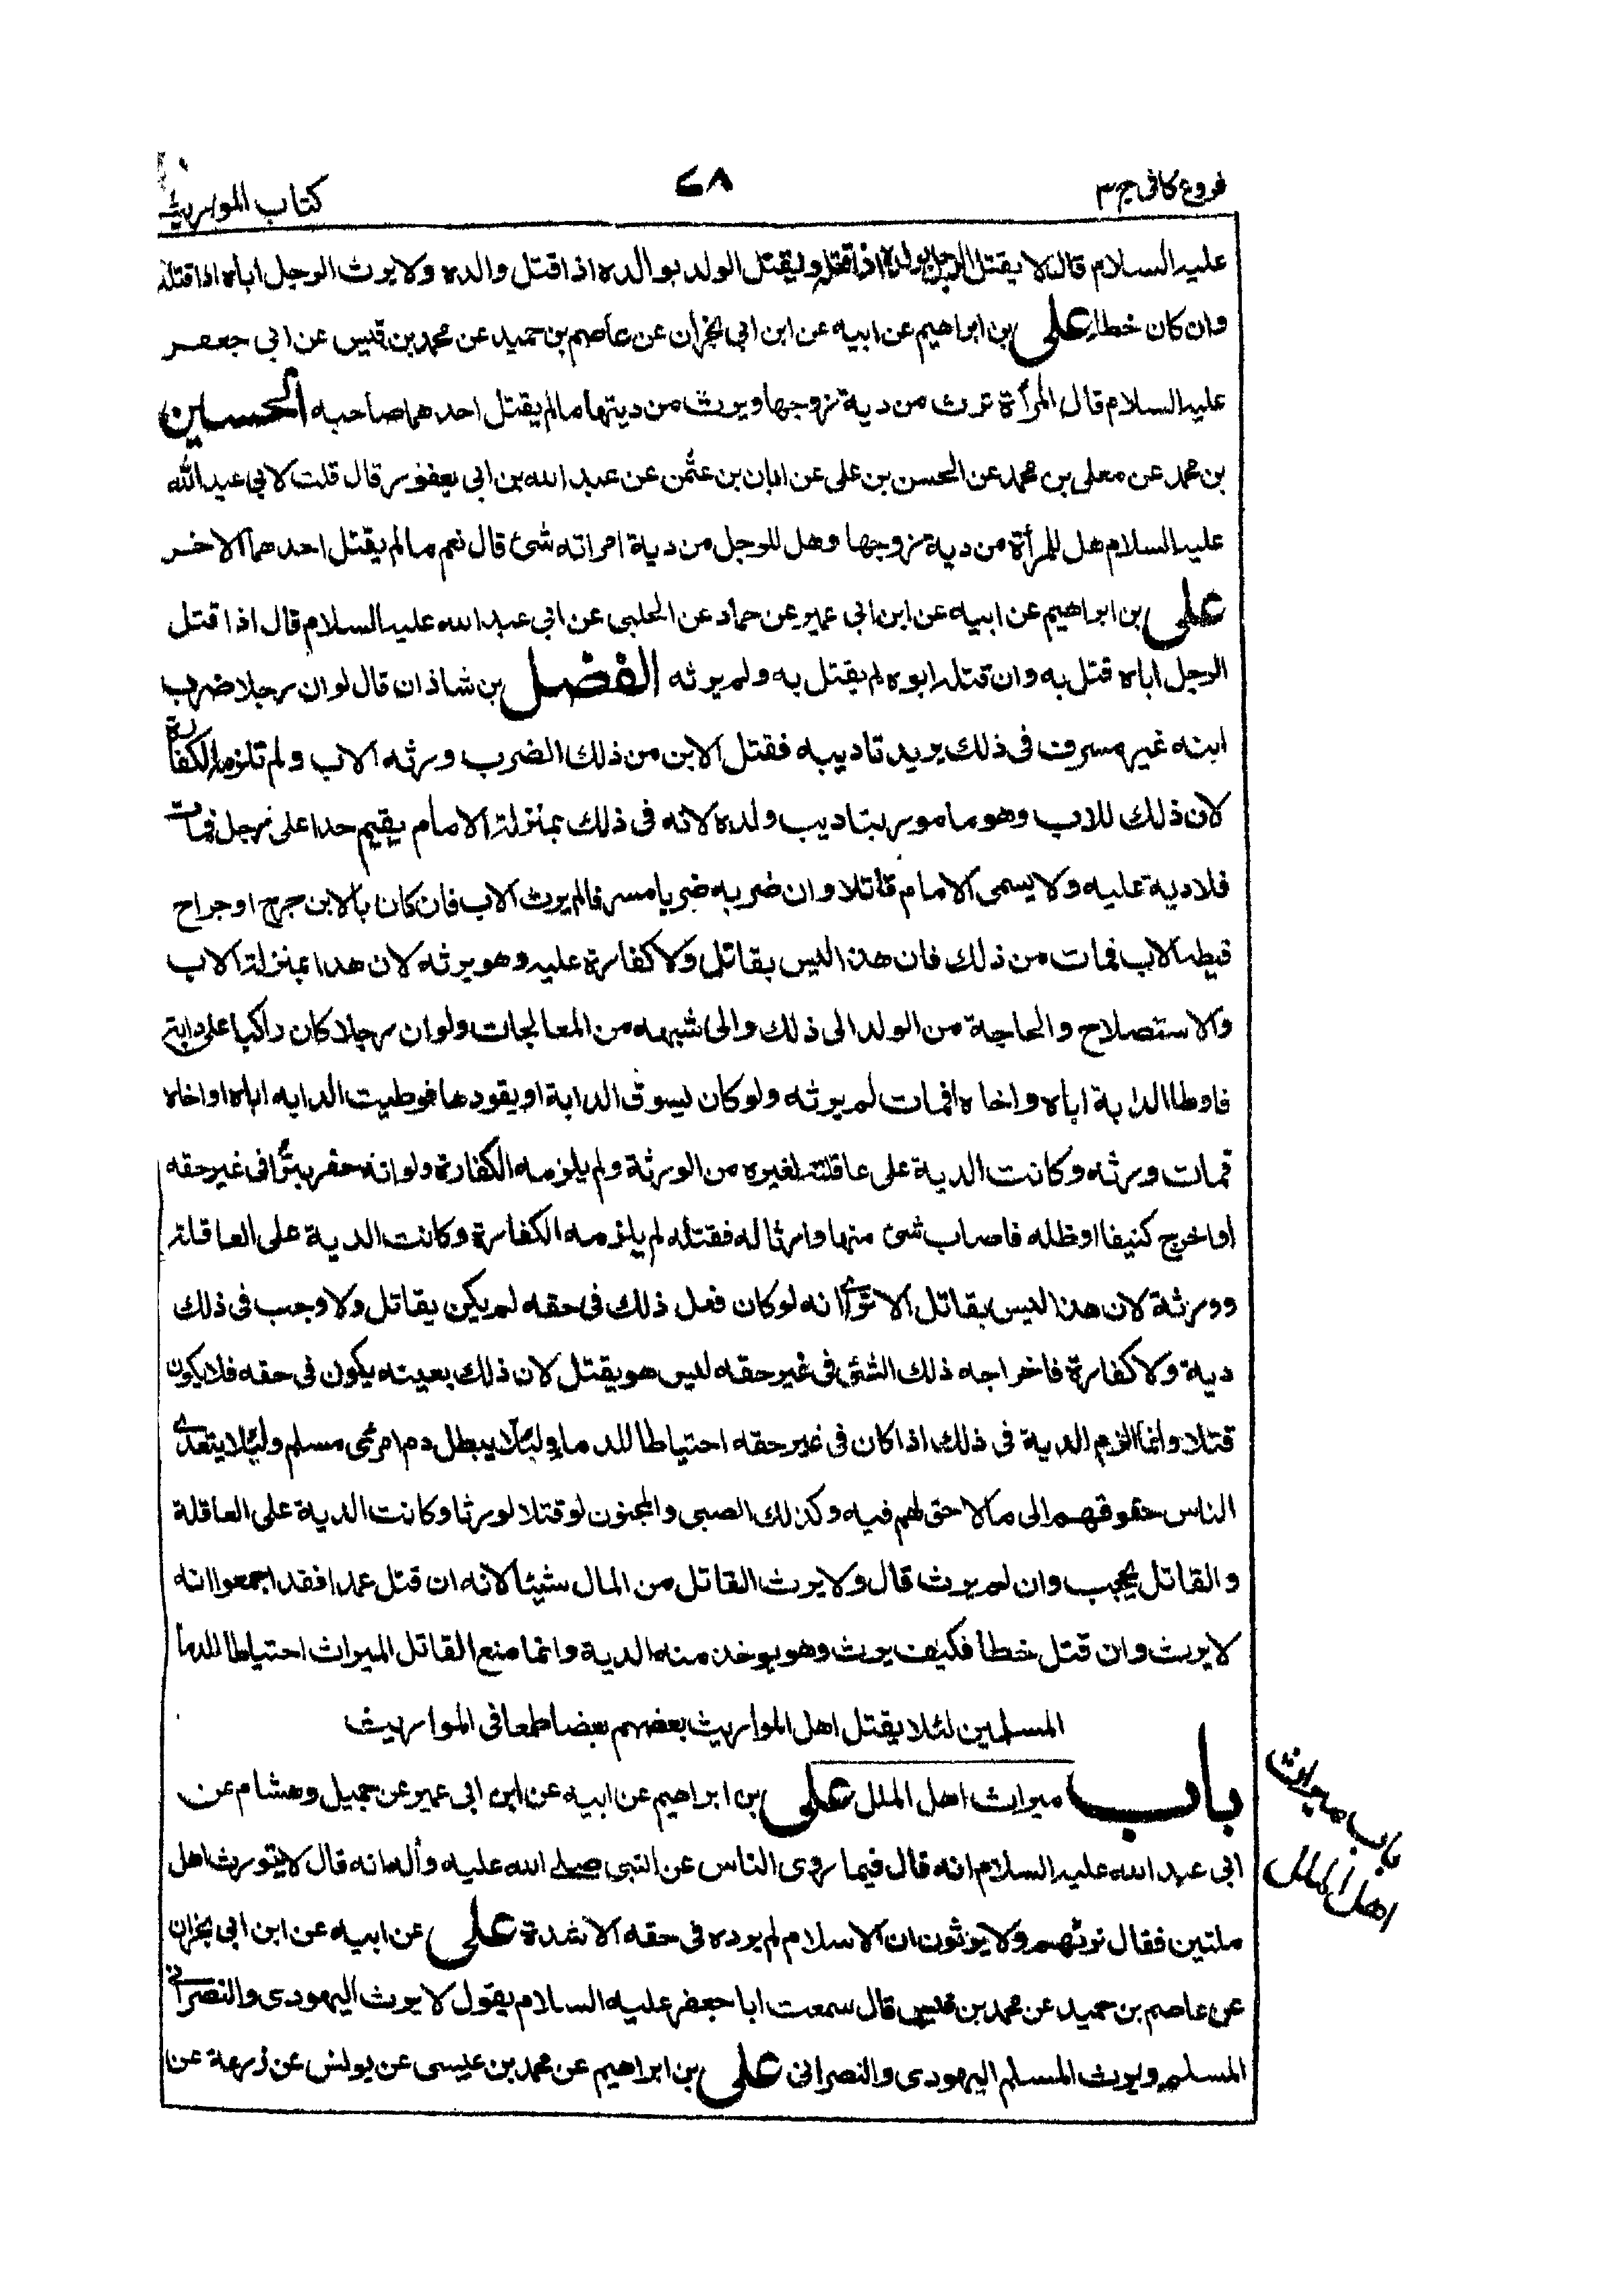 فروع كافى ج ٣
٧٨
كتاب المواريث
عليه السلام قال لا يقتل الرجل بولده اذا قتله ويقتل الولد بوالده اذا قتل والده ولا يرث الرجل اباه اذا قتله
وان كان خطاء على بن ابراهيم عن ابيه عن ابن ابى نجران عن عاصم بن حميد عن محمد بن قيس عن ابى جعفر
عليه السلام قال المرأة ترث من دية زوجها ويرث من ديتها ما لم يقتل احدهما صاحبه الحسين
بن محمد عن معلى بن محمد عن الحسن بن على عن ابان بن عثمن عن عبد الله بن ابى يعفور قال قلت لابى عبد الله
عليه السلام هل للمرأة من دية زوجها وهل للرجل من دية امراته شئ قال نعم ما لم يقتل احدهما الاخر
على بن ابراهيم عن ابيه عن ابن ابى عمير عن حماد عن الحلبى عن ابى عبد الله عليه السلام قال اذا قتل
الرجل اباه قتل به وان قتله ابوه لم يقتل به ولم يرثه الفضل بن شاذان قال لو ان رجلا ضرب
ابنه غير مسرف فى ذلك يريد تاديبه فقتل الابن من ذلك الضرب ورثه الاب ولم تلزمه الكفارة
لان ذلك للاب وهو مامور بتاديب ولده لانه فى ذلك بمنزلة الامام يقيم حدا على رجل فمات
فلا دية عليه ولا يسمى الامام قاتلا وان ضربه ضربا مسرفا لم يرث الاب فان كان بالابن جرح او جراح
فبطه الاب فمات من ذلك فان هذا ليس بقاتل ولا كفارة عليه وهو يرثه لان هذا بمنزلة الاب
والاستصلاح والحاجة من الولد الى ذلك والى شبهه من المعالجات ولو ان رجلا كان راكبا على دابته
فاوطا الدابة اباه واخاه فمات لم يرثه ولو كان يسوق الدابة او يقودها فوطيت الدابه اباه او اخاه
فمات ورثه وكانت الدية على عاقلته لغيره من الورثة ولم يلزمه الكفارة ولو انه حفر بئرا فى غير حقه
او اخرج كنيفا او ظله فاصاب شئ منها وارثا له فقتله لم يلزمه الكفارة وكانت الدية على العاقلة
وورثة لان هذا ليس بقاتل الا ترى انه لو كان فعل ذلك فى حقه لم يكن بقاتل ولا وجب فى ذلك
دية ولا كفارة فاخراجه ذلك الشئ فى غير حقه ليس هو بقتل لان ذلك بعينه يكون فى حقه فلا يكون
قتلا وانما الزم الدية فى ذلك اذا كان فى غير حقه احتياطا للدماء ولئلا يبطل دم امرئ مسلم ولئلا يتعدى
الناس حقوقهم الى ما لا حق لهم فيه وكذلك الصبى والمجنون لو قتلا لورثا وكانت الدية على العاقلة
والقاتل يحجب وان لم يرث قال ولا يرث القاتل من المال شيئا لانه ان قتل عمدا فقد اجمعوا انه
لا يرث وان قتل خطأ فكيف يرث وهو يوخذ منه الدية وانما منع القاتل الميراث احتياطا لدماء
المسلمين لئلا يقتل اهل المواريث بعضهم بعضا طمعا فى المواريث
باب ميراث اهل الملل على بن ابراهيم عن ابيه عن ابن ابى عمير عن جميل وهشام عن
ابى عبد الله عليه السلام انه قال فيما روى الناس عن النبى صلى الله عليه وآله انه قال لا يتوارث اهل
ملتين فقال نرثهم ولا يرثون ان الاسلام لم يزده فى حقه الا شدة على عن ابيه عن ابن ابى نجران
عن عاصم بن حميد عن محمد بن قيس قال سمعت ابا جعفر عليه السلام يقول لا يرث اليهودى والنصرانى
المسلم ويرث المسلم اليهودى والنصرانى على بن ابراهيم عن محمد بن عيسى عن يونس عن زرعة عن
باب ميراث
اهل الملل